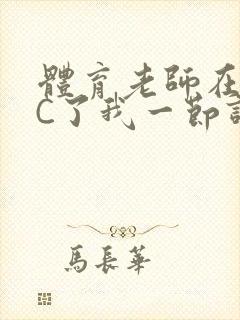 體育老師在
C了我一節
馬長華